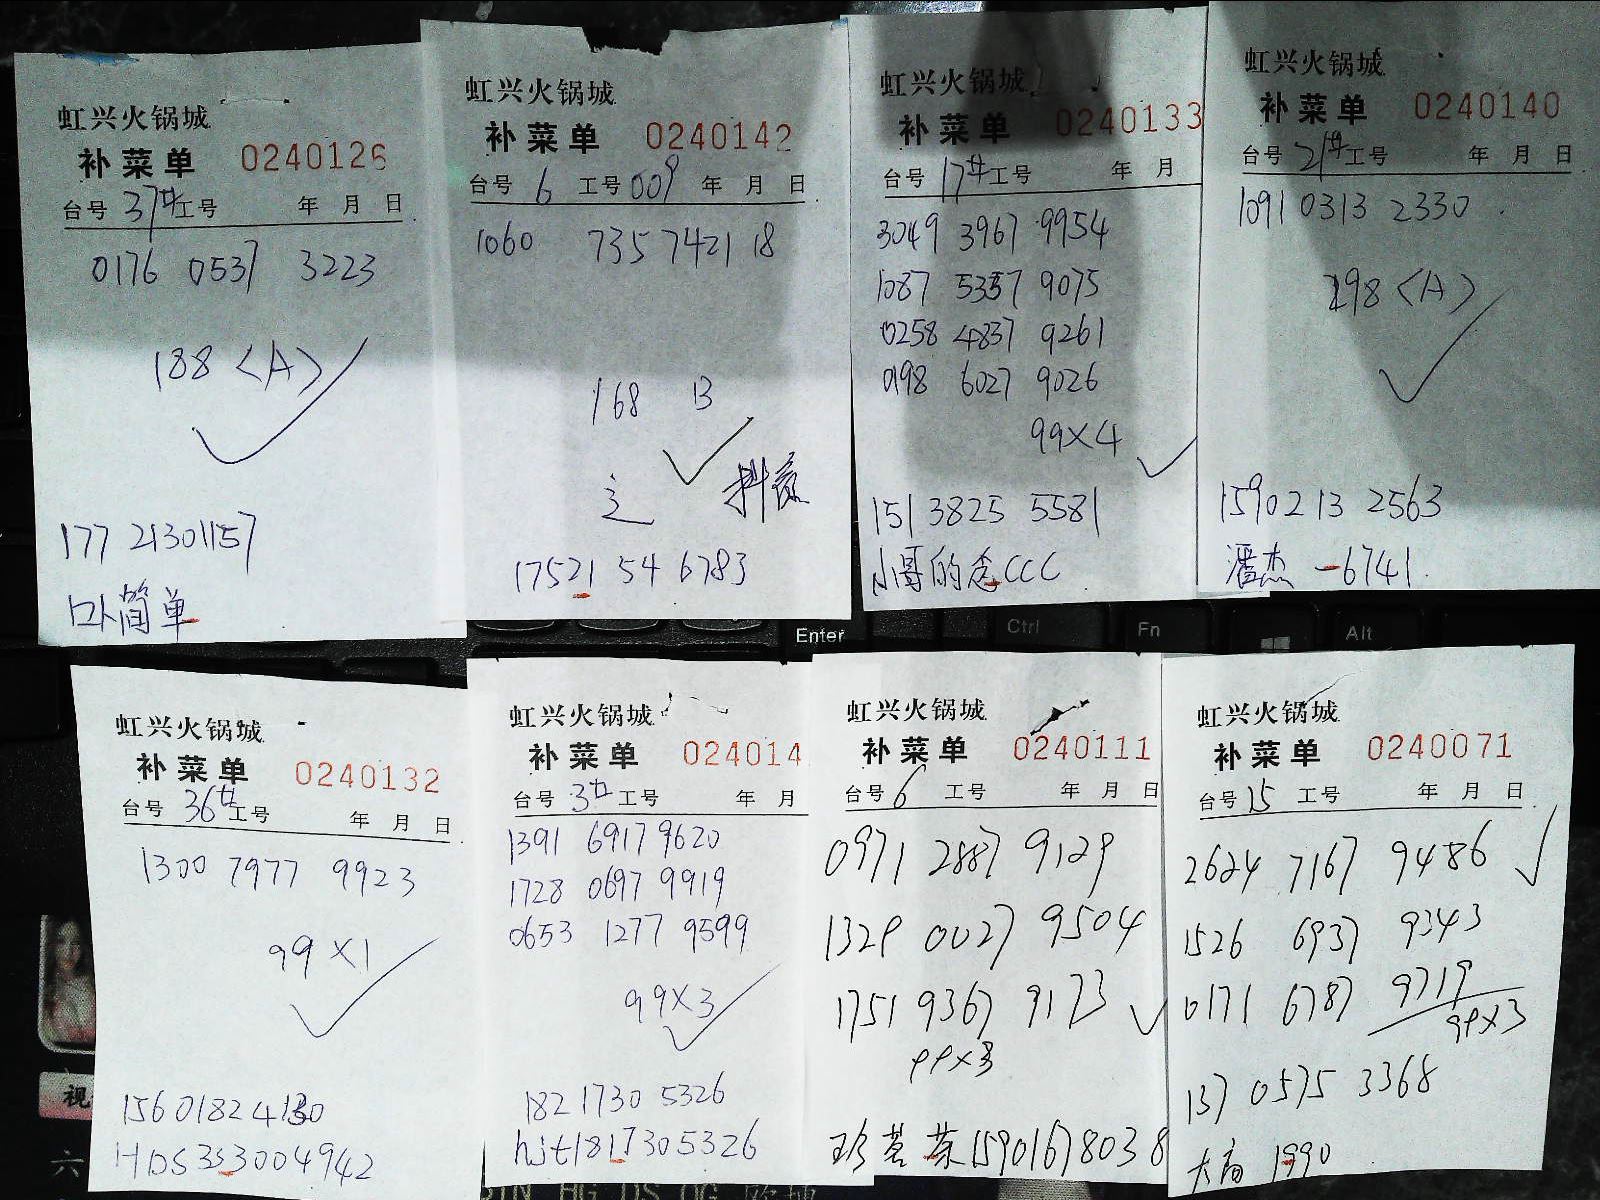 虹兴火锅城
补菜单 0240126
台号 37# 工号 年 月 日
0176 0537 3223
188 <A>
177 21301157
口卜简单
虹兴火锅城
补菜单 0240142
台号 6 工号 009 年 月 日
1060 735 7421 18
168 13
17521 54 6783
虹兴火锅城
补菜单 0240133
台号 17# 工号 年 月
3049 3967 9954
1087 5357 9075
0258 4837 9261
0198 6027 9026
99×4
151 3825 5581
小哥的念CCC
虹兴火锅城
补菜单 0240140
台号 21# 工号 年 月 日
1091 0313 2330
298 <A>
15902 13 2563
潘杰 -6741
虹兴火锅城
补菜单 0240132
台号 36# 工号 年 月 日
1300 7977 9923
99×1
HDS353004942
虹兴火锅城
补菜单 024014
台号 3# 工号 年 月
1391 6917 9620
1728 0697 9919
0653 1277 9599
99×3
182 1730 5326
hjt1817305326
虹兴火锅城
补菜单 0240111
台号 6 工号 年 月 日
0971 2887 9129
1329 0027 9504
1751 9367 9173
99×3
15901678038
虹兴火锅城
补菜单 0240071
台号 15 工号 年 月 日
2624 7167 9486
1526 6937 9343
0171 6787 9719
99×3
137 0575 3368
1990
Enter
Ctrl
Fn
Alt
视
六